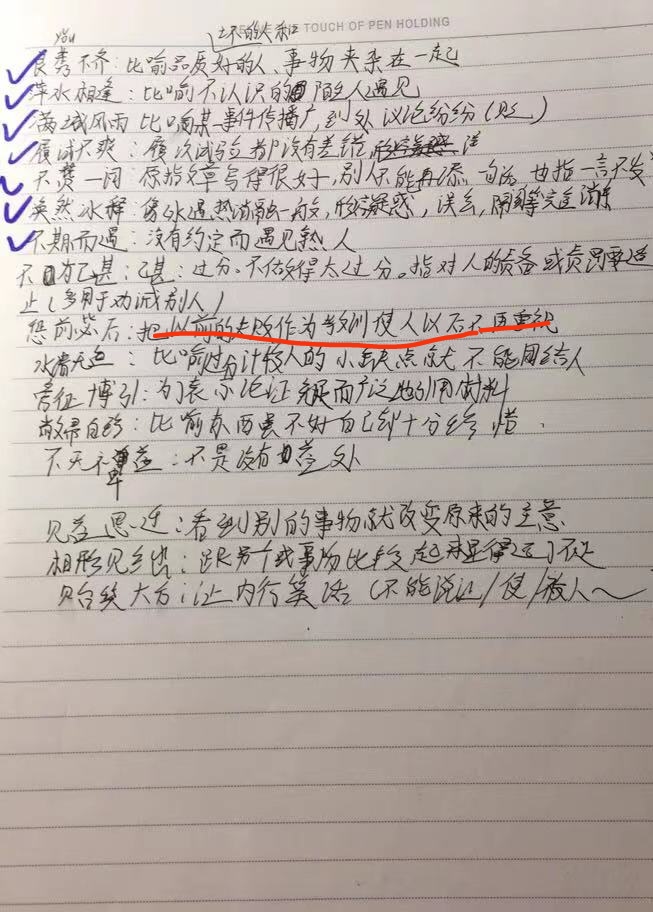 you 坏的人和
TOUCH OF PEN HOLDING
良莠不齐：比喻品质好的人、事物夹杂在一起
萍水相逢：比喻不认识的陌人遇见
满城风雨 比喻某一事件传播广，到处议论纷纷（贬）
屡试不爽：屡次试验都没有差错
不赞一词 原指文章写得很好，别人不能再添一句话 也指一言不发
涣然冰释：像冰遇热消融一般，形容疑惑，误会，隔阂等完全消除
不期而遇：没有约定而遇见熟人
不为已甚：已甚：过分。不做得太过分。指对人的责备或责罚要适
止（多用于劝诫别人）
惩前毖后：把以前的失败作为教训使人以后不再重视
水清无鱼：比喻过分计较人的小缺点就不能团结人
旁征博引：为了表示论证充足而广泛地引用材料
敝帚自珍：比喻东西虽不好自己却十分珍惜．
不无裨益：不是没有益处
卑
见异思迁：看到别的事物就改变原来的主意
相形见绌：跟另个或事物比较起来显得远不足
贻笑大方：让内行笑话（不能说让/使/被人～